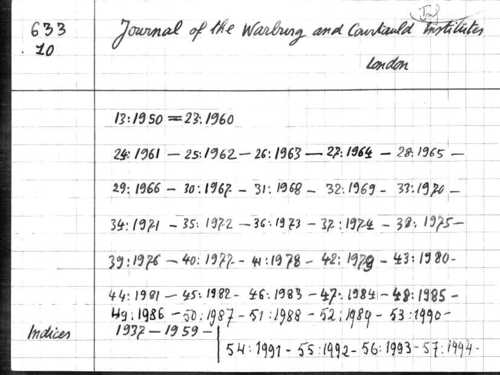 633 Journal of the Warburg and Courtauld Institutes
.10
London
13:1950 = 23:1960
24:1961 – 25:1962 – 26:1963 – 27:1964 – 28:1965 –
29:1966 – 30:1967 – 31:1968 – 32:1969 – 33:1970 –
34:1971 – 35:1972 – 36:1973 – 37:1974 – 38:1975 –
39:1976 – 40:1977 – 41:1978 – 42:1979 – 43:1980 –
44:1981 – 45:1982 – 46:1983 – 47:1984 – 48:1985 –
49:1986 – 50:1987 – 51:1988 – 52:1989 – 53:1990 –
Indices 1937 – 1959 –
54:1991 – 55:1992 – 56:1993 – 57:1994 –